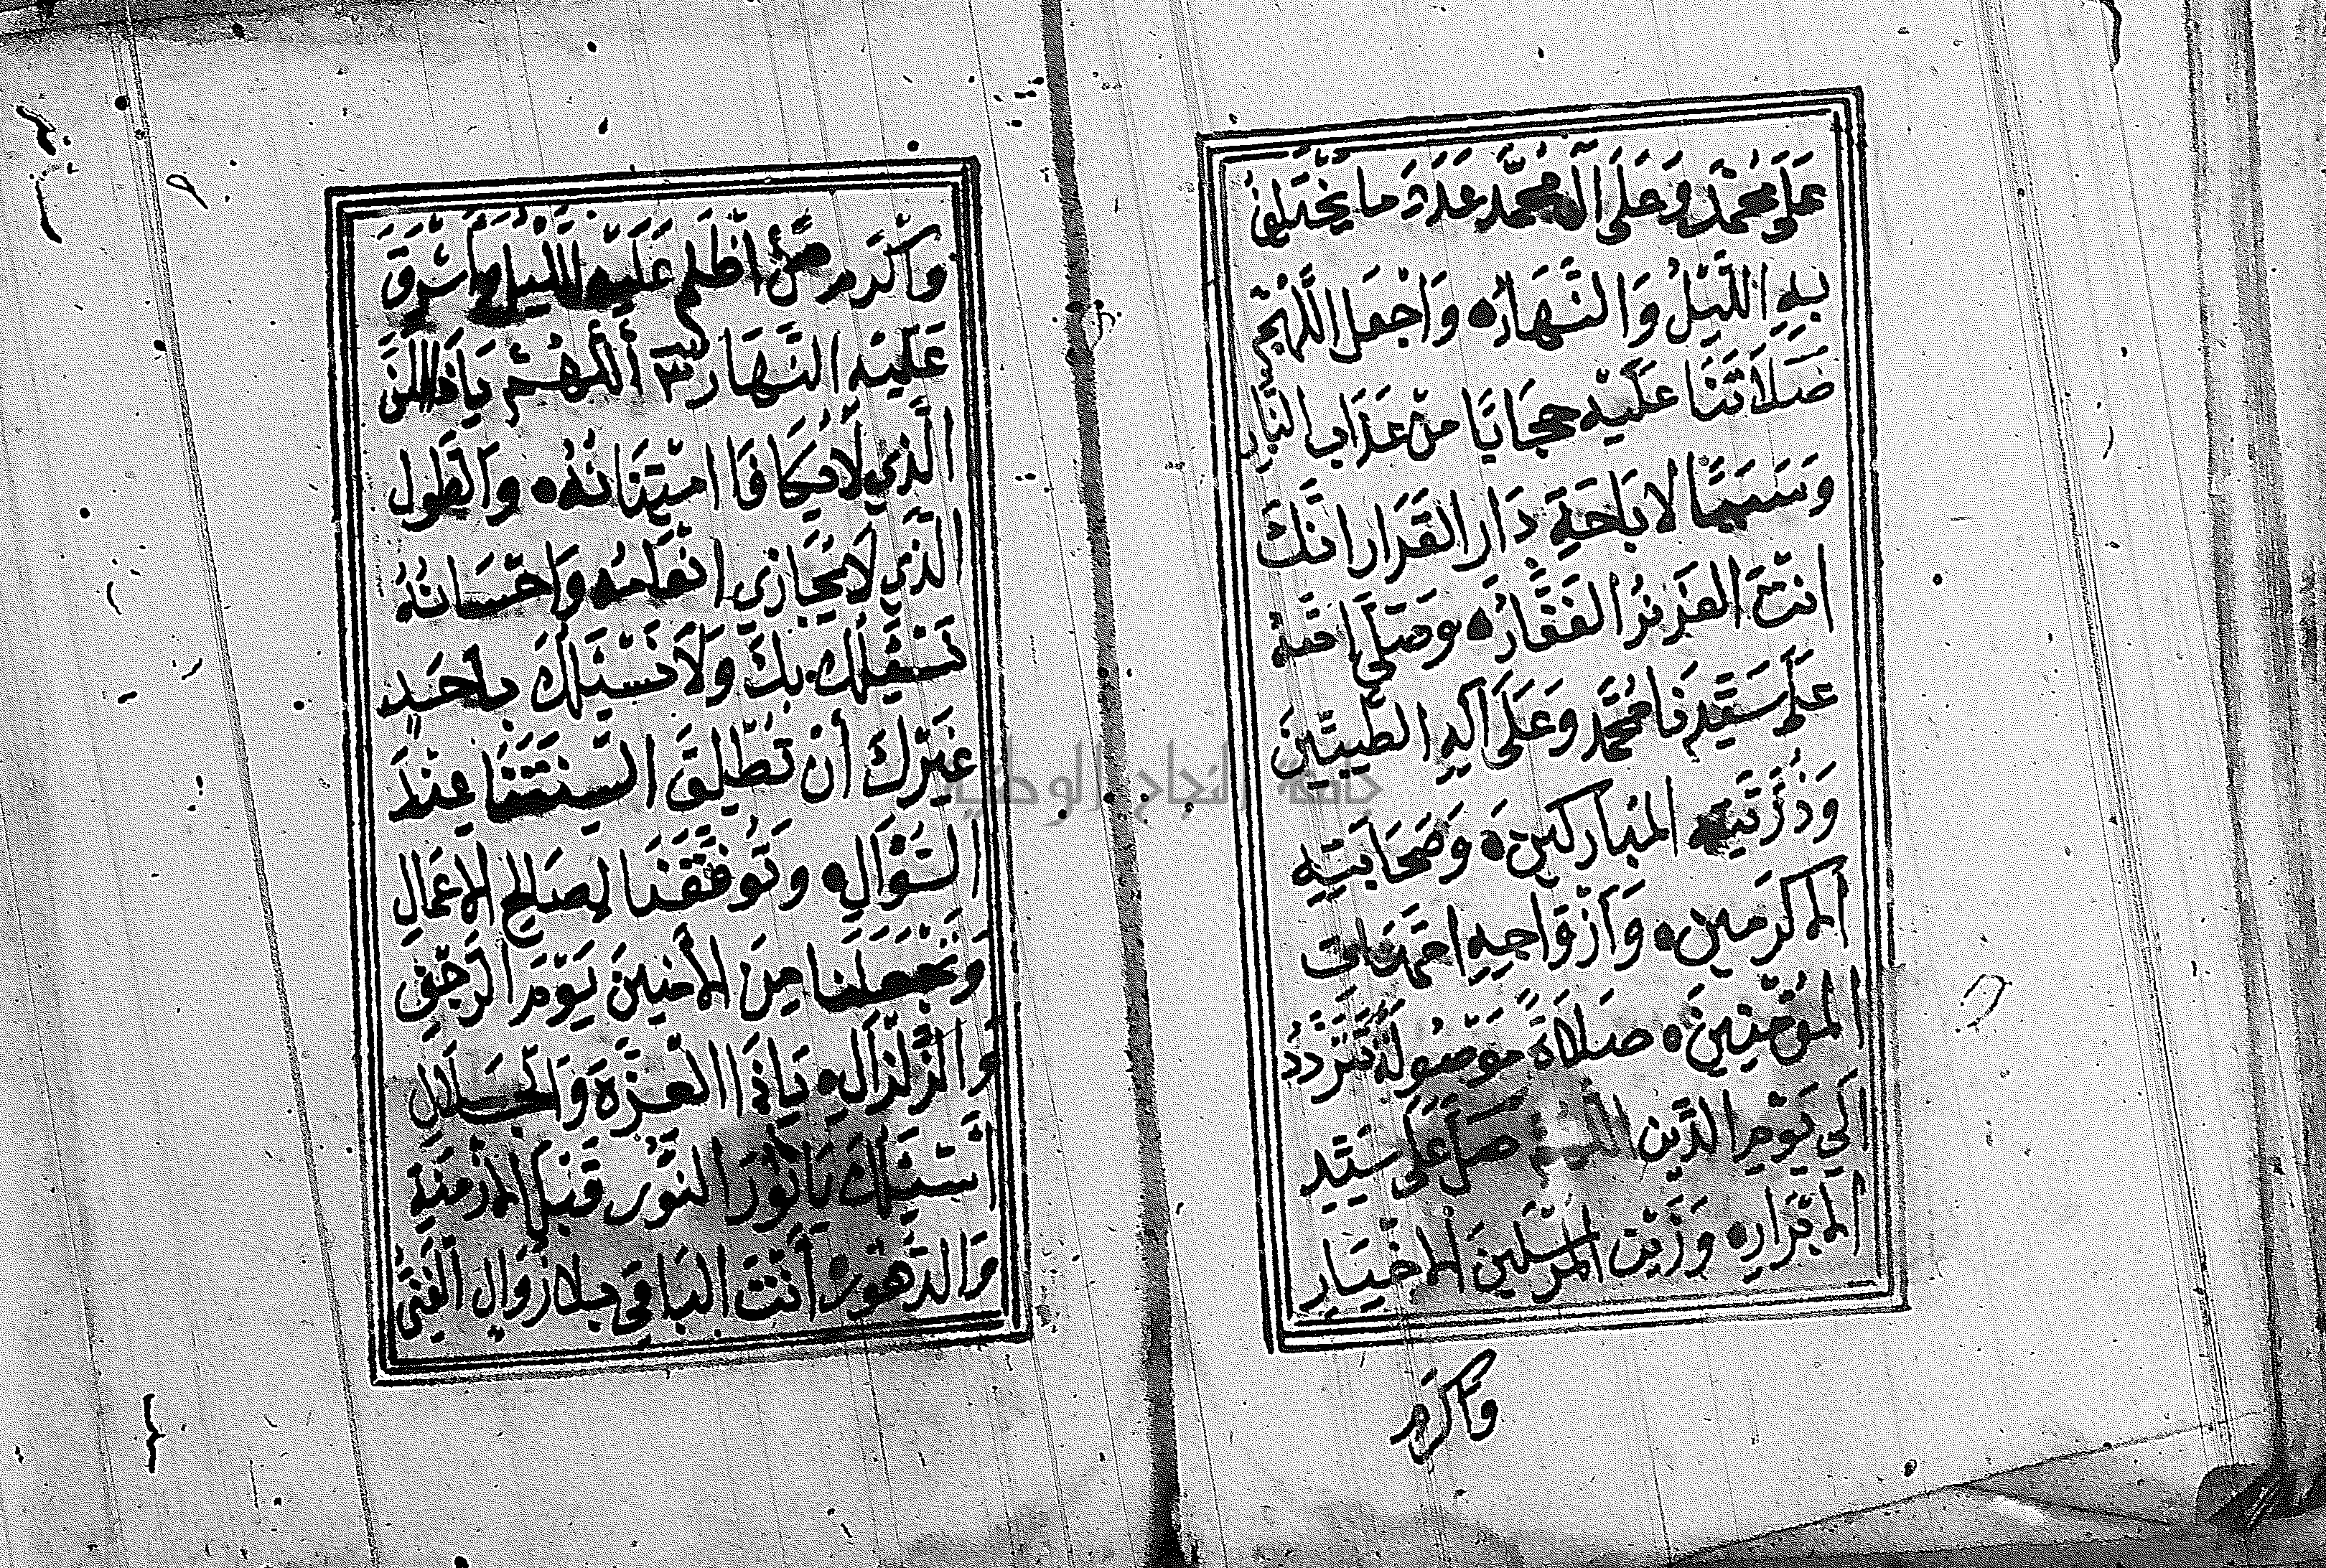 عَلَى مُحَمَّدٍ وَعَلَى آلِ مُحَمَّدٍ عَدَدَ مَا يَخْتَلِفُ
بِهِ اللَّيْلُ وَالنَّهَارُ وَاجْعَلِ اللَّهُمَّ
صَلَاتَنَا عَلَيْهِ حِجَابًا مِنْ عَذَابِ النَّارِ
وَسَبَبًا لِابَاحَةِ دَارِ الْقَرَارِ اِنَّكَ
اَنْتَ الْعَزِيزُ الْغَفَّارُ وَصَلَّى اللَّهُ
عَلَى سَيِّدِنَا مُحَمَّدٍ وَعَلَى آلِهِ الطَّيِّبِينَ
وَذُرِّيَّتِهِ الْمُبَارَكِينَ وَصَحَابَتِهِ
الْمُكْرَمِينَ وَأَزْوَاجِهِ اُمَّهَاتِ
الْمُؤْمِنِينَ صَلَاةً مَوْصُولَةً تَتَرَدَّدُ
اِلَى يَوْمِ الدِّينِ اللَّهُمَّ صَلِّ عَلَى سَيِّدِ
الْاَبْرَارِ وَزَيْنِ الْمُرْسَلِينَ الْاَخْيَارِ
وَأَكْرَمِ
وَأَكْرَمِ مَنْ أَظْلَمَ عَلَيْهِ اللَّيْلُ وَأَشْرَقَ
عَلَيْهِ النَّهَارُ ٣ أَللَّهُمَّ يَاذَا الْمَنِّ
الَّذِي لَا يُكَافَا امْتِنَانُهُ وَالطَّوْلِ
الَّذِي لَا يُجَازَى اِنْعَامُهُ وَاِحْسَانُهُ
نَسْئَلُكَ بِكَ وَلَا نَسْئَلُكَ بِأَحَدٍ
غَيْرِكَ أَنْ تُطْلِقَ اَلْسِنَتَنَا عِنْدَ
السُّؤَالِ وَتُوَفِّقَنَا لِصَالِحِ الْاَعْمَالِ
وَتَجْعَلَنَا مِنَ الْأَمِنِينَ يَوْمَ الرَّجْفِ
وَالزَّلْزَالِ يَاذَا الْعِزَّةِ وَالْجَلَالِ
اَسْئَلُكَ يَا نُورَ النُّورِ قَبْلَ الْاَزْمِنَةِ
وَالدُّهُورِ أَنْتَ الْبَاقِي بِلَا زَوَالٍ الْغَنِيُّ
جامعة النجاح الوطنية